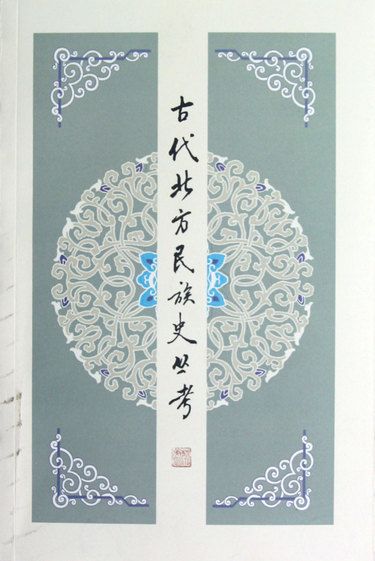 古代北方民族史丛考